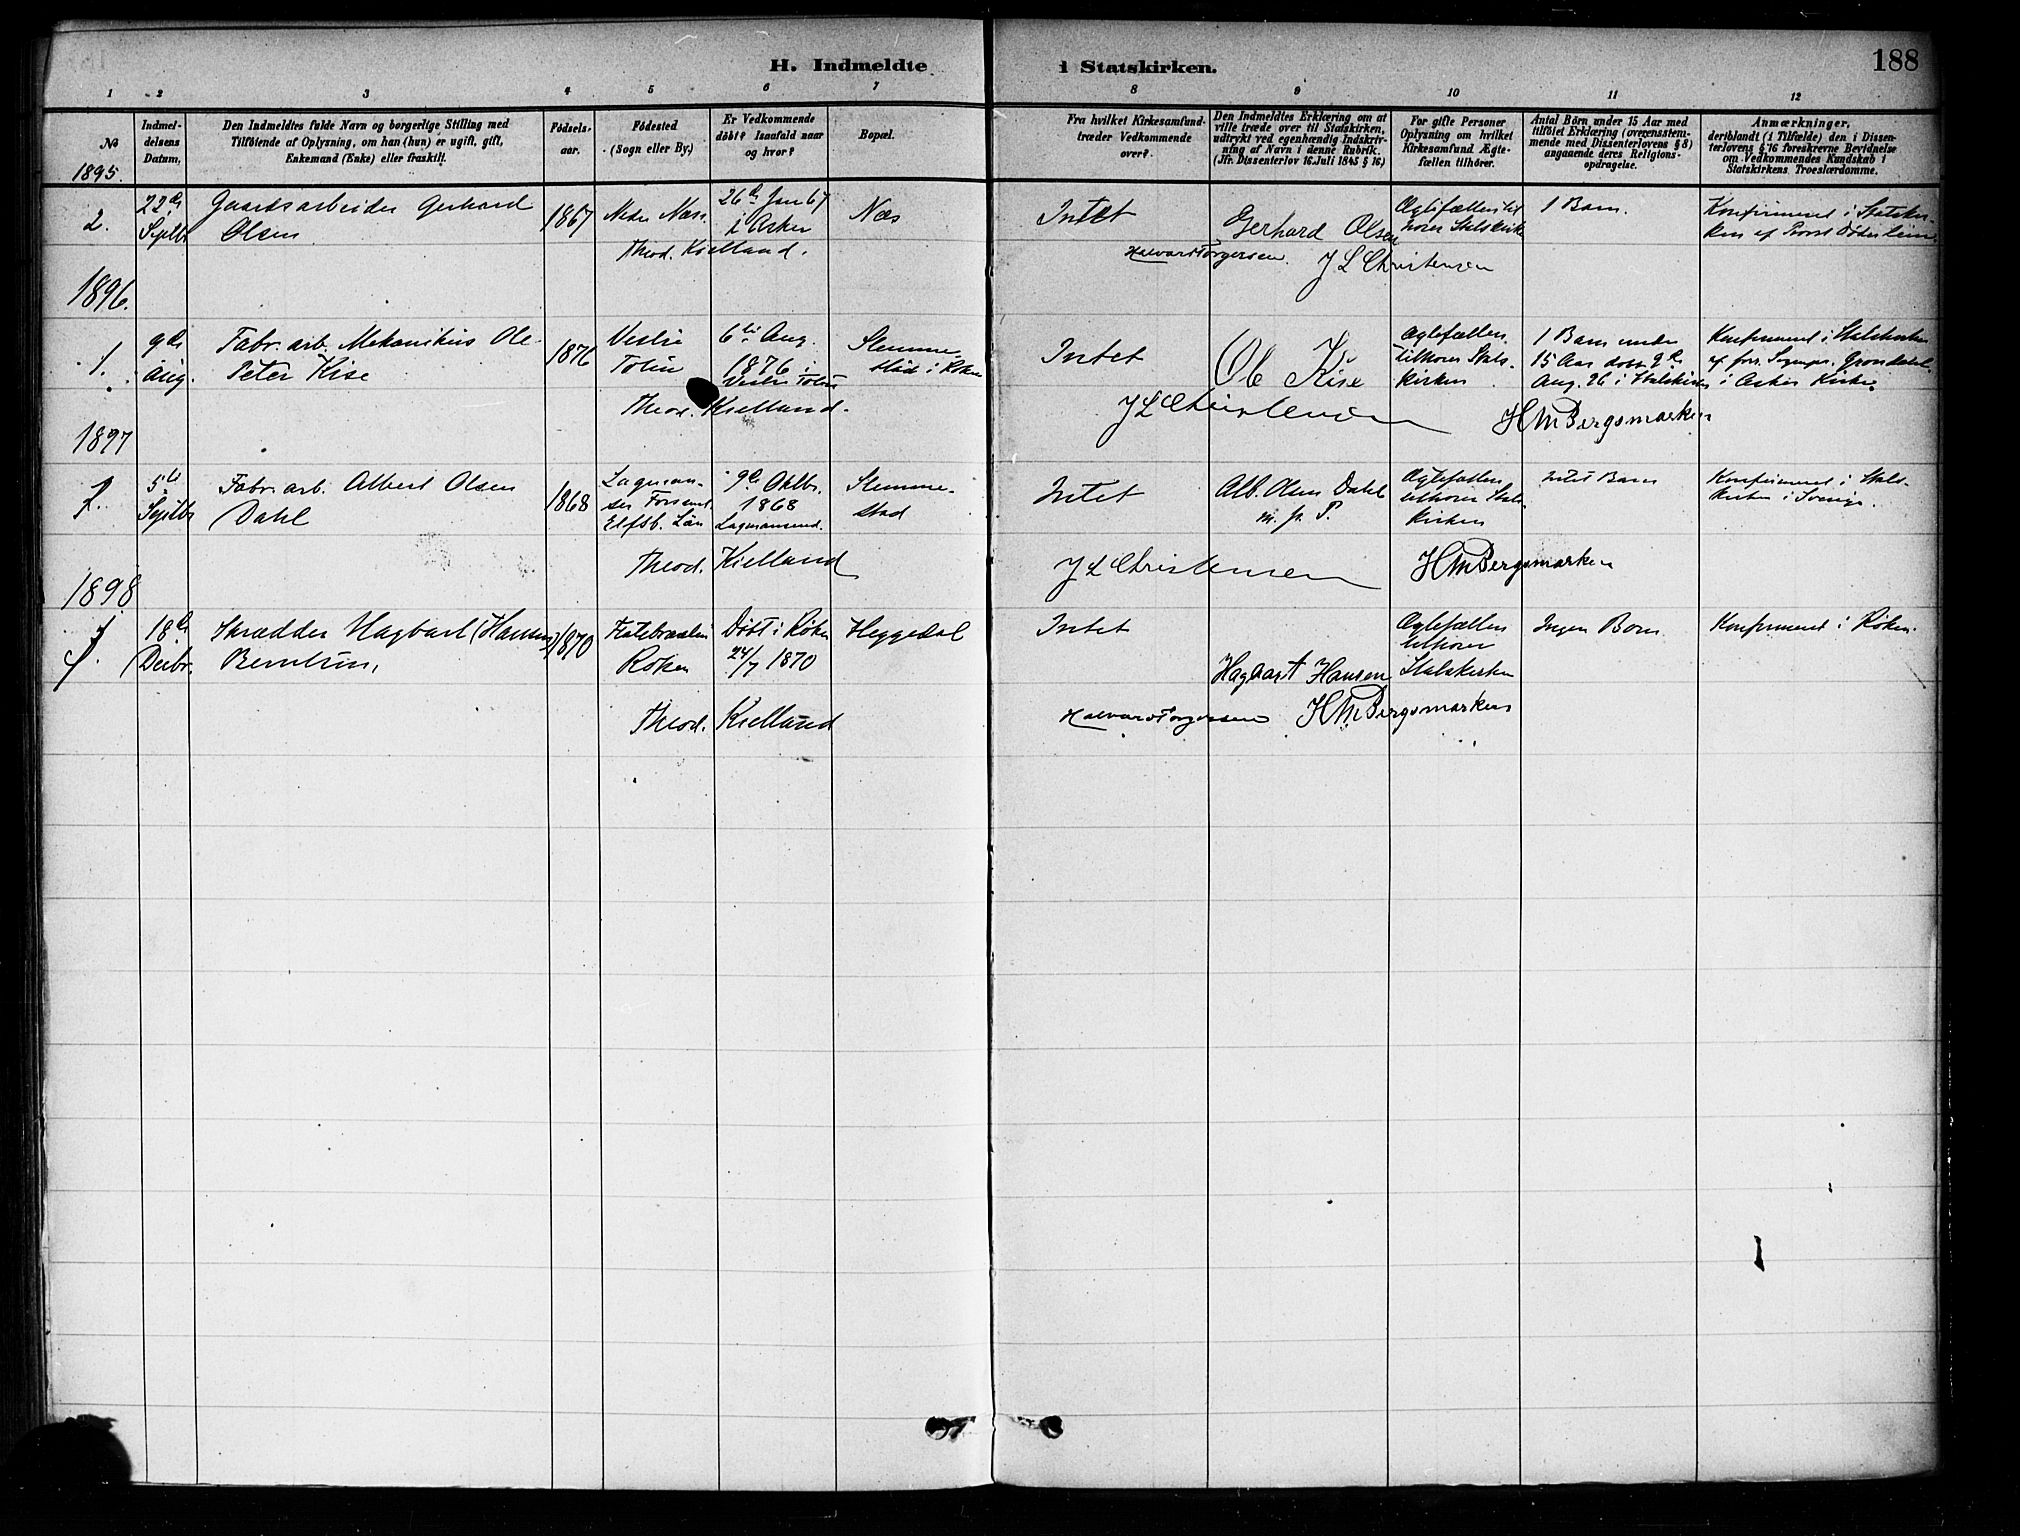 188
H. Indmeldte i Statskirken.
1 2 3 4 5 6 7 8 9 10 11 12
No
Indmel-
delsens
Datum,
Den Indmeldtes fulde Navn og borgerlige Stilling med
Tilføiende af Oplysning, om han (hun) er ugift, gift,
Enkemand (Enke) eller fraskilt.
Fødsels-
aar.
Fødested
(Sogn eller By.)
Er Vedkommende
døbt? Isaafald naar
og hvor?
Bopæl.
Fra hvilket Kirkesamfund
træder Vedkommende
over?
Den Indmeldtes Erklæring om at
ville træde over til Statskirken,
udtrykt ved egenhændig Indskriv-
ning af Navn i denne Rubrik.
(Jfr. Dissenterlov 16. Juli 1845 § 16)
For gifte Personer
Oplysning om hvilket
Kirkesamfund Ægte-
fællen tilhører.
Antal Børn under 15 Aar med
tilføiet Erklæring (overensstem-
mende med Dissenterlovens § 8)
angaaende deres Religions-
opdragelse.
Anmærkninger,
deriblandt (i Tilfælde) den i Dissen-
terlovens § 16 foreskrevne Bevidnelse
om Vedkommendes Kundskab i
Statskirkens Troeslærdomme.
1895.
2.
22de
Septbr
Gaardsarbeider Gerhard
Olsen
1867
Nedre Næss
26de Jan 67
i Asker
Næs
Intet
Gerhard Olsen
Ægtefællen til
hører Statskirke
1 Barn.
Konfirmeret i Statskir-
ken af Provst Døderlein
Theod. Kielland.
Halvard Torgersen.
J L Christensen
1896.
1.
9de
Aug.
Fabr. arb. Mekanikus Ole
Peter Kise
1876
Vestre
Toten
6te Aug.
1876 i
Vestre Toten
Slemme-
stad i Røken
Intet
Ole Kise
Ægtefællen
tilhører Stats-
kirken
1 Barn under
15 Aar døbt 9de
Aug. 96 i Statskirken
Konfirmeret i Statskirken
af forr. Sognepr. Grøndahl
i Asker Kirke.
Theod. Kielland.
J L Christensen
H M Bergsmarken
1897
5te
Septbr
Fabr. arb. Albert Olsen
Dahl
1868
Elfsb. Län
9de Oktbr.
1868
Slemme-
stad
Intet
Alb. Olsen Dahl
m. p. P.
Ægtefællen
tilhører Stats-
kirken
intet Barn
Konfirmeret i Stats-
kirken i Sverige.
Theod. Kielland
J L Christensen
H M Bergsmarken
1898
1.
18de
Decbr.
Skrædder Hagbart (Hansen)
Berntsen,
1870
Røken
Døbt i Røken
24/7 1870
Heggedal
Intet
Hagbart Hansen
Ægtefællen
tilhører
Statskirken
Ingen Børn
Konfirmeret i Røken.
Theod. Kielland
Halvard Torgersen
H M Bergsmarken